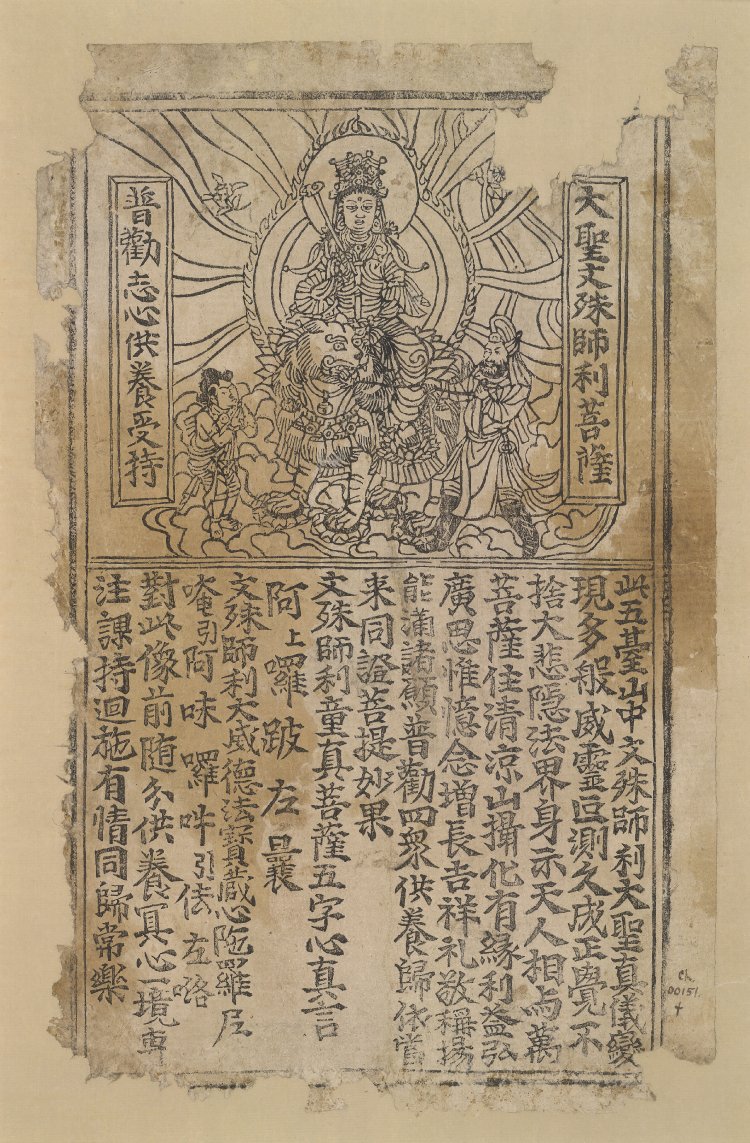 大聖文殊師利菩薩
普勸志心供養受持
此五臺山中文殊師利大聖真儀變
現多般威靈叵測久成正覺不
捨大悲隱法界身示天人相与萬
菩薩住清涼山攝化有緣利益弘
廣思惟憶念增長吉祥礼敬稱揚
能滿諸願普勸四衆供養歸依當
来同證菩提妙果
文殊師利童真菩薩五字心真言
阿上囉跛左曩
文殊師利大威德法寶藏心陁羅尼
唵引阿味囉吽引佉左咯
對此像前随分供養冥心一境專
注課持迴施有情同歸常樂
Ch.
00151.